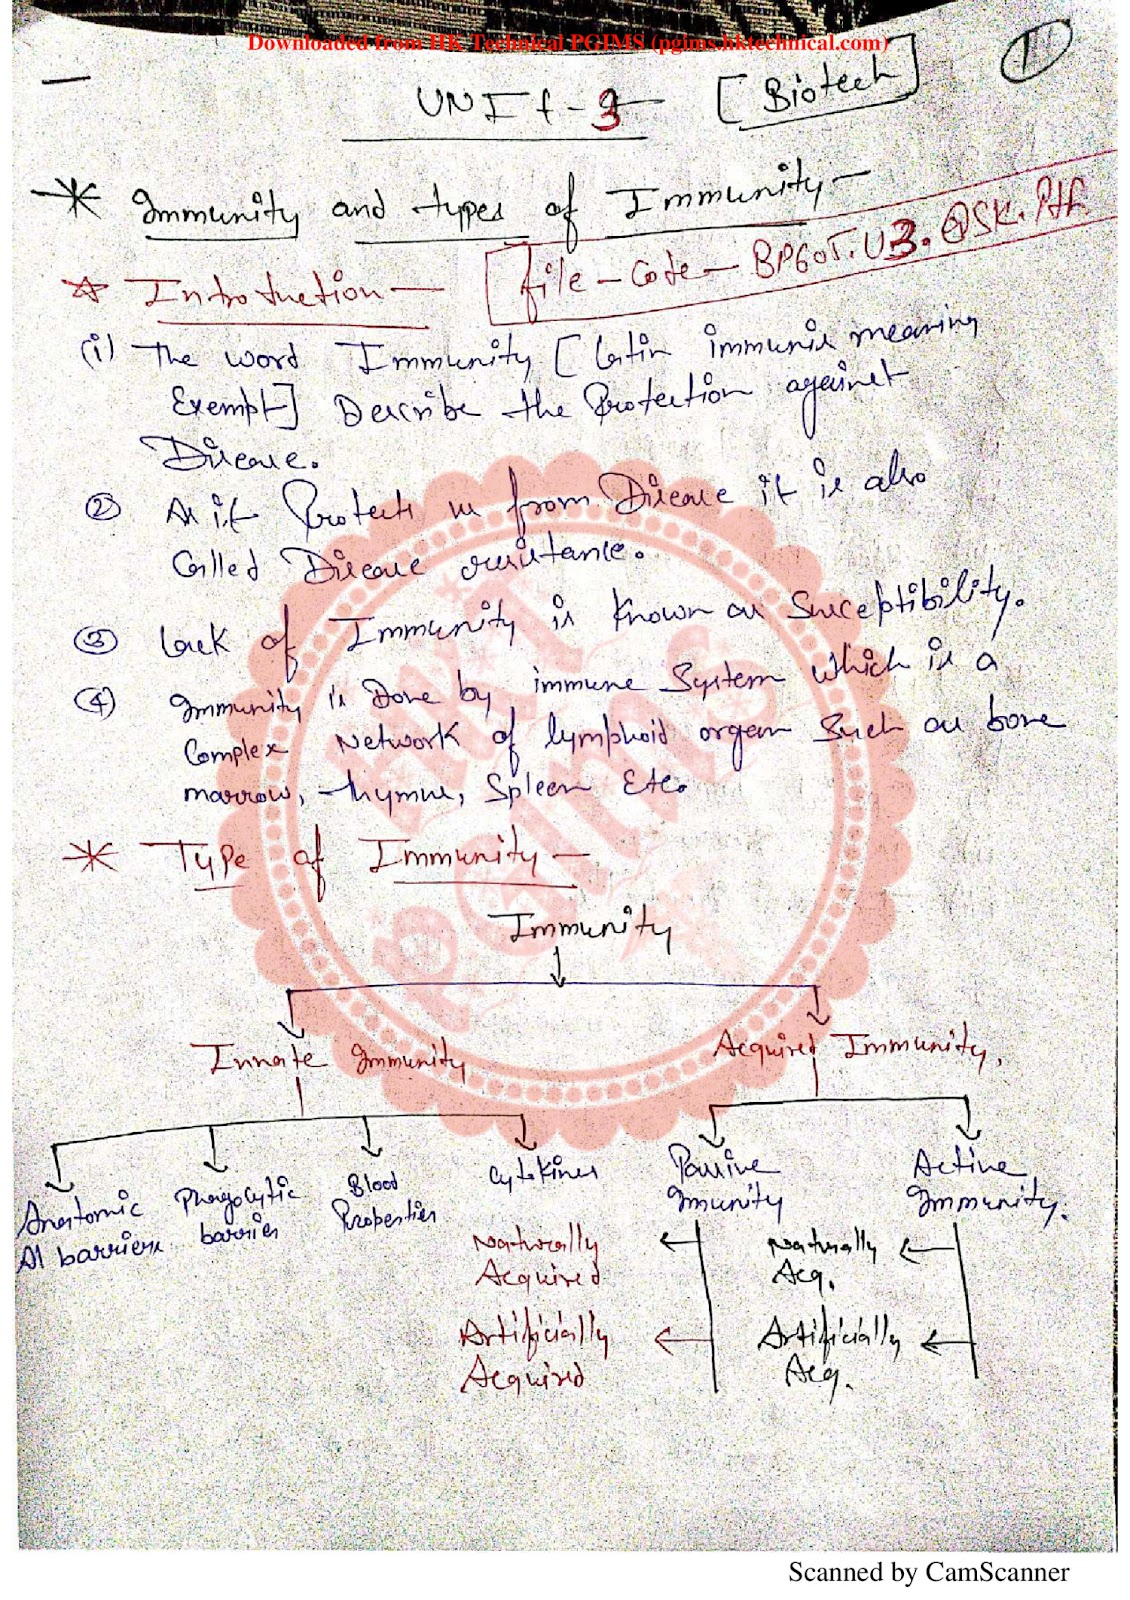 Downloaded from HK Technical PGIMS (pgims.hktechnical.com)
1
UNIt-3 [Biotech]
* Immunity and types of Immunity-
[file-Code- BP605T.U3.
☆ Introduction-
(i) The word Immunity [Latin immunis meaning
Exempt] Describe the Protection against
Disease.
② As it Protects us from Disease it is also
Called Disease resistance.
③ Lack of Immunity is Known as Susceptibility.
④ Immunity is Done by immune System which is a
Complex Network of lymphoid organ Such as bone
marrow, thymus, Spleen Etc.
* Type of Immunity-
Immunity
Innate Immunity Acquired Immunity.
Anatomic Phagocytic Blood Cytokines Passive Active
Al barriers barrier Properties Imunity Immunity.
Naturally Naturally
Acquired Acq.
Artificially Artificially
Acquired Acq.
HKT
PGIMS
Scanned by CamScanner